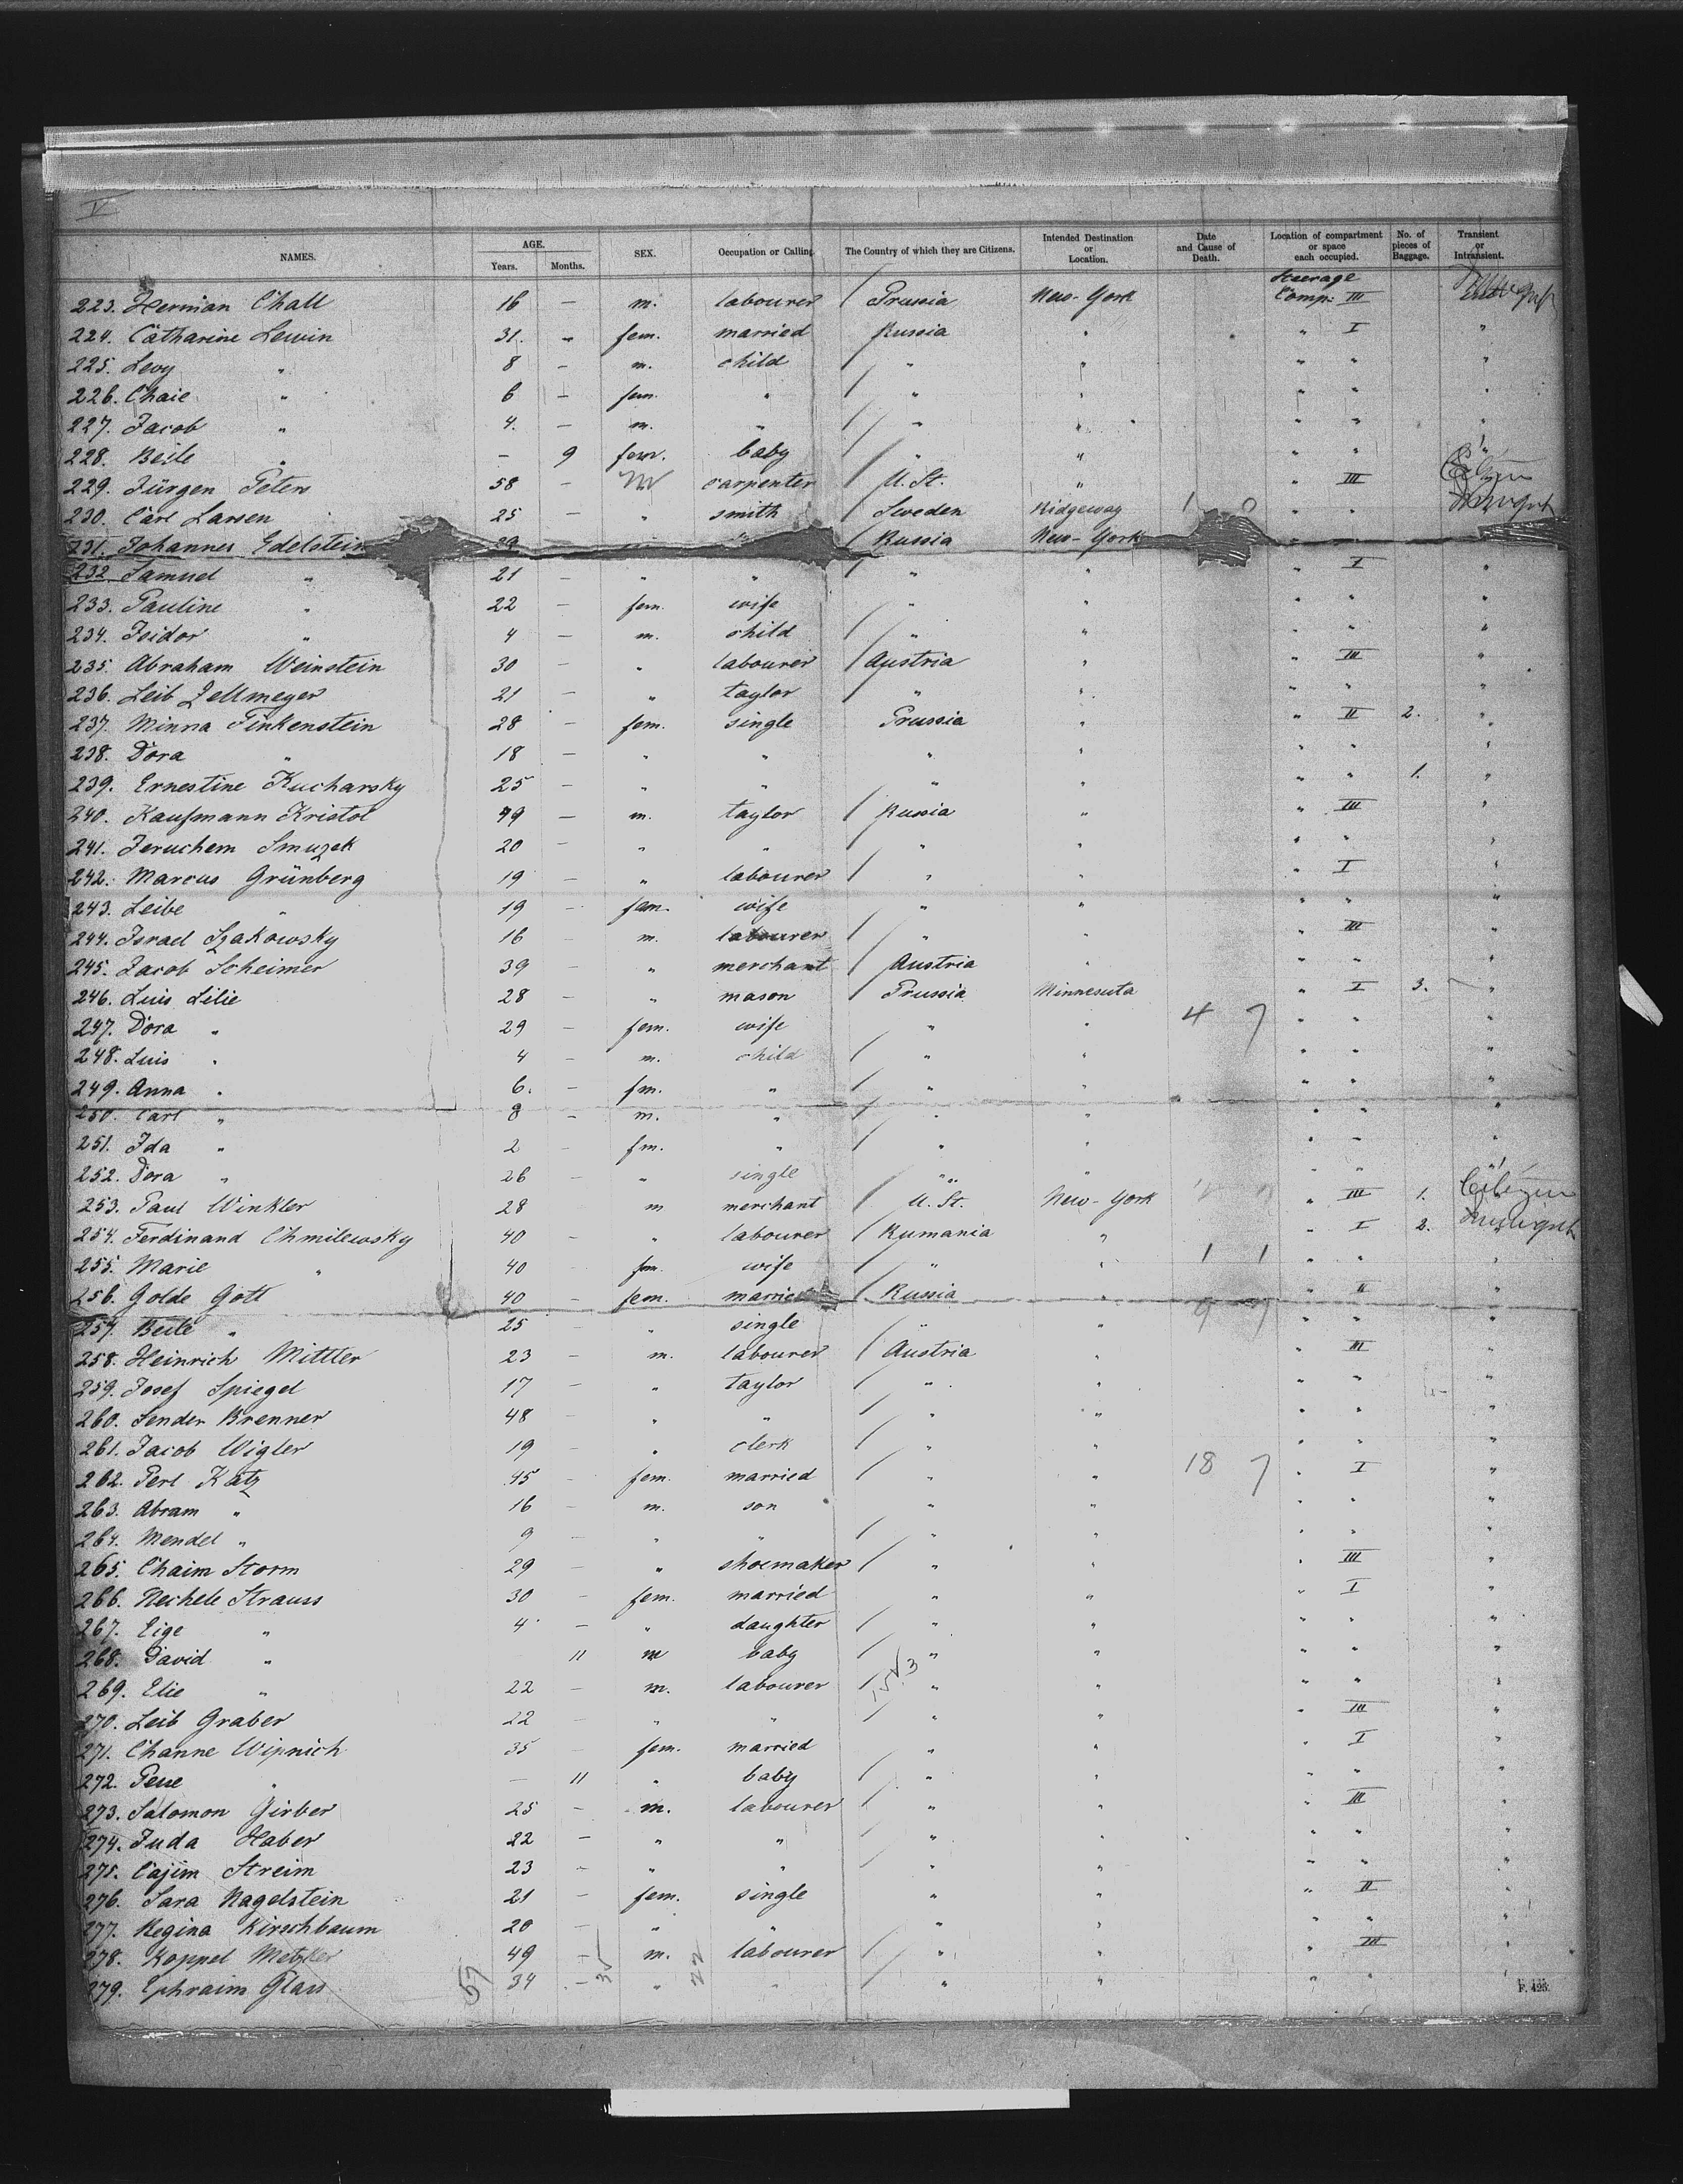 V
NAMES. AGE. Years. Months. SEX. Occupation or Calling. The Country of which they are Citizens. Intended Destination or Location. Date and Cause of Death. Location of compartment or space each occupied. No. of pieces of Baggage. Transient or Intransient.
223. Herman Chall 16 — m. labourer Prussia New-York Steerage Comp: III
224. Catharine Lewin 31. „ fem. married Russia " " I "
225. Levy " 8 — m. child " " " " "
226. Chaie " 6 — fem. " " " " " "
227. Jacob " 4. — m. " " " " " "
228. Beile " — 9 fem. baby " " " " "
229. Jürgen Peters 58 — M carpenter U. St. " " III Citizen
230. Carl Larsen 25 — " smith Sweden Ridgeway 1 0 " "
231. Johannes Edelstein 29 " Russia New-York " "
232. Samuel " 21 — " " " " " I "
233. Pauline " 22 — fem. wife " " " " "
234. Isidor " 4 — m. child " " " " "
235. Abraham Weinstein 30 — " labourer Austria " " III "
236. Leib Zellmeyer 21 — " taylor " " " " "
237. Minna Finkenstein 28 — fem. single Prussia " " II 2. "
238. Dora " 18 — " " " " " " "
239. Ernestine Kucharsky 25 — " " " " " " 1. "
240. Kaufmann Kristol 49 — m. taylor Russia " " III "
241. Jeruchem Smuzek 20 — " " " " " " "
242. Marcus Grünberg 19 — " labourer " " " I "
243. Leibe " 19 — fem. wife " " " " "
244. Israel Szakowsky 16 — m. labourer " " " III "
245. Jacob Scheimer 39 — " merchant Austria " " " "
246. Luis Lilie 28 — " mason Prussia Minnesuta " I 3. "
247. Dora " 29 — fem. wife " " 4 7 " " "
248. Luis " 4 — m. child " " " " "
249. Anna " 6. — fm. " " " " " "
250. Carl " 8 — m. " " " " " "
251. Ida " 2 — fm. " " " " " "
252. Dora " 26 — " single " " " " "
253. Paul Winkler 28 m merchant U. St. New-York " III 1. Citizen
254. Ferdinand Chmilewsky 40 — " labourer Rumania " " I 2.
255. Marie " 40 fem. wife " " 1 1 " " "
256. Golde Gott 40 — fem. married Russia " " II "
257. Beile " 25 — " single " " 9 7 " " "
258. Heinrich Mittler 23 — m. labourer Austria " " III "
259. Josef Spiegel 17 — " taylor " " " " "
260. Sender Brenner 48 — " " " " " " "
261. Jacob Wigler 19 — " clerk " " " " "
262. Perl Katz 45 — fem. married " " 18 7 " I "
263. Abram " 16 — m. son " " " " "
264. Mendel " 9 — " " " " " " "
265. Chaim Storm 29 — " shoemaker " " " III "
266. Nechele Strauss 30 — fem. married " " " I "
267. Eige " 4 — " daughter " " " " "
268. David " 11 m baby " " " " "
269. Elie " 22 — m. labourer " " " " "
270. Leib Graber 22 — " " " " " III "
271. Channe Wipnich 35 — fem. married " " " I "
272. Pese " — 11 " baby " " " " "
273. Salomon Girber 25 — m. labourer " " " III "
274. Juda Haber 22 — " " " " " " "
275. Cajim Streim 23 — " " " " " " "
276. Sara Nagelstein 21 — fem. single " " " II "
277. Regina Kirschbaum 20 — " " " " " " "
278. Koppel Metzker 49 — m. labourer " " " III "
279. Ephraim Glass 34 — " " " " " " "
57 35 22
F. 425.